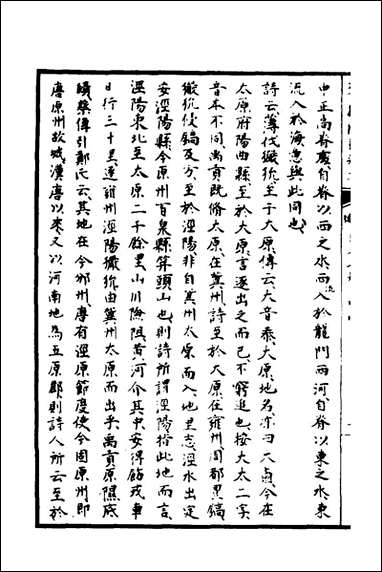 中正高脊處自脊以西之水西流入於龍門西河自脊以東之水東
流入於海意與此同也
詩云薄伐玁狁至于大原傳云大音泰大原地名亦曰大鹵今在
太原府陽曲縣至於大原言逐出之而已不窮追也按大太二字
音本不同禹貢既脩太原在冀州詩至於大原在雍州周都豐鎬
玁狁侵鎬及方至於涇陽非自冀州太原而入地里志涇水出定
安涇陽縣今原州百泉縣笄頭山也則詩所謂涇陽指此地而言
涇陽東北至太原二千餘里山川險阻黃河介其中安得飭戎車
日行三十里逐雍州涇陽玁狁由冀州太原而出乎禹貢原隰厎
績蔡傳引鄭氏云其地在今邠州唐有涇原節度使今固原州即
唐原州故城漢唐以來又以河南地為五原郡則詩人所云至於